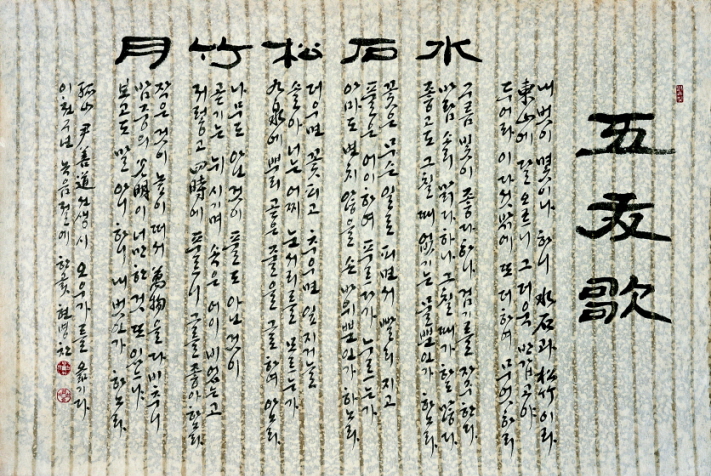 五友歌
내 벗이 몇이나 하니 水石과 松竹이라
東山에 달 오르니 그 더욱 반갑고야
두어라 이 다섯 밖에 또 더하여 무엇하리
水
구름 빛이 좋다 하나 검기를 자주 한다
바람 소리 맑다 하나 그칠 때가 많다
좋고도 그칠 때 없기는 물뿐인가 하노라
石
꽃은 무슨 일로 피면서 빨리 지고
풀은 어이하여 푸르다가 누르는가
아마도 변치 않을손 바위뿐인가 하노라
松
더우면 꽃 피고 추우면 잎 지거늘
솔아 너는 어찌 눈서리를 모르는가
九泉에 뿌리 곧은 줄을 글로 하여 아노라
竹
나무도 아닌 것이 풀도 아닌 것이
곧기는 뉘 시기며 속은 어이 비었는고
저렇고 四時에 푸르니 그를 좋아하노라
月
작은 것이 높이 떠서 萬物을 다 비추니
밤중의 光明이 너만한 것 또 있느냐
보고도 말 아니하니 내 벗인가 하노라
孤山 尹善道 선생 시 오우가를 옮기다
녹음절에 한곬 현병찬